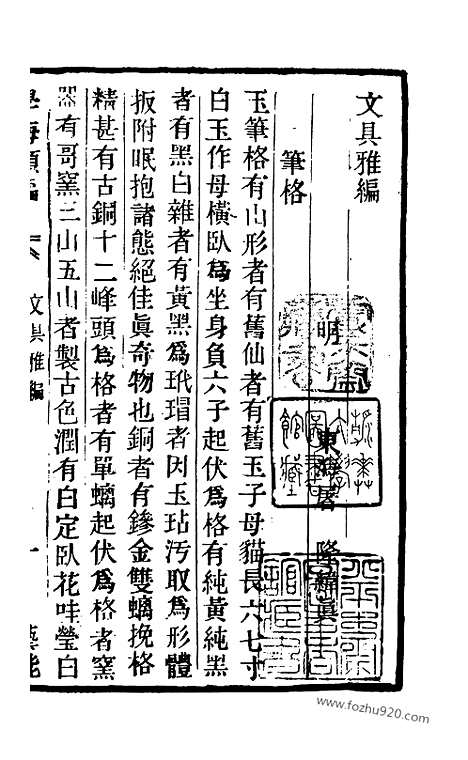 文具雅編
明 東海屠 隆緯眞
筆格
玉筆格有山形者有舊仙者有舊玉子母貓長六七寸
白玉作母橫臥爲坐身負六子起伏爲格有純黃純黑
者有黑白雜者有黃黑爲玳瑁者因玉玷汚取爲形體
扳附眠抱諸態絕佳眞奇物也銅者有鏒金雙螭挽格
精甚有古銅十二峰頭爲格者有單螭起伏爲格者窯
器有哥窯三山五山者製古色潤有白定臥花哇瑩白
學海類編 文具雅編 一
www.fozhu920.com